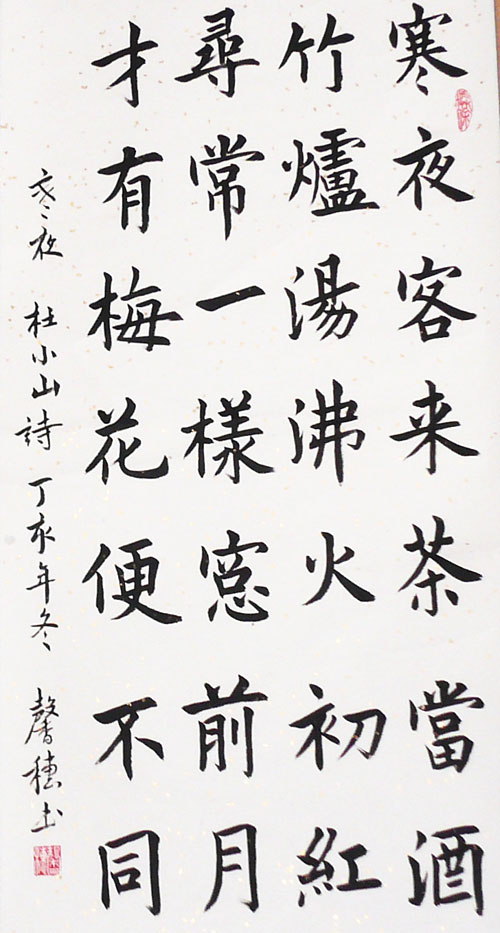 寒夜客来茶當酒
竹爐湯沸火初紅
尋常一樣窓前月
才有梅花便不同
寒夜 杜小山詩 丁亥年冬 馨穗书